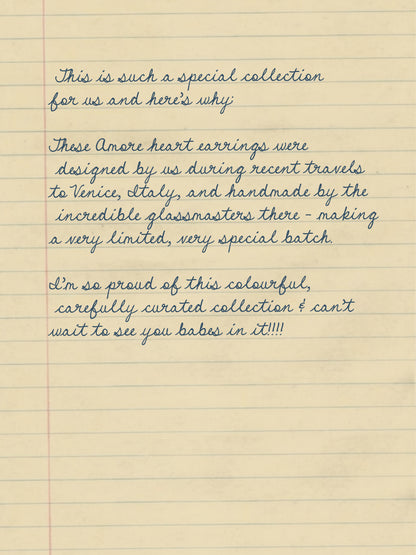 This is such a special collection
for us and here's why;
These Amore heart earrings were
designed by us during recent travels
to Venice, Italy, and handmade by the
incredible glassmasters there - making
a very limited, very special batch.
I'm so proud of this colourful,
carefully curated collection & can't
wait to see you babes in it!!!!